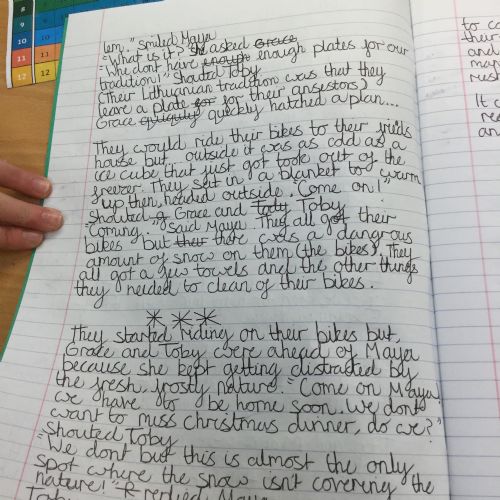 8
9
10
11
12
11
12
lem." Smiled Maya
"What is it? She asked Grace
"Whe dont have enough enough plates for our
tradition!" Shouted Toby
(Their Lithuanian tradition was that they
leave a plate for for their ansestors)
Grace quiquily quickly hatched a plan...
They would ride their bikes to their frids
house but outside it was as cold as a
ice cube that just got took out of the
freezer. They sat in a blanket to warm
up then headed outside. "Come on!"
Shouted Grace and Toby Toby
"Coming." Said Maya. They all got their
bikes but their there was a dangrous
amount of snow on them (the bikes). They
all got a few towels and the other things
they needed to clean of their bikes.
***
They started riding on their bikes but,
Grace and Toby were ahead of Maya
because she kept getting distracted by
the fresh, frosty nature. "Come on Maya,
we have to be home soon. We dont
want to miss christmas dinner, do we?"
Shouted Toby
"We dont but this is almost the only
spot where the snow isnt covering the
nature!" R replied Maya
Toby
to c
their
and
may
res
It
re
an